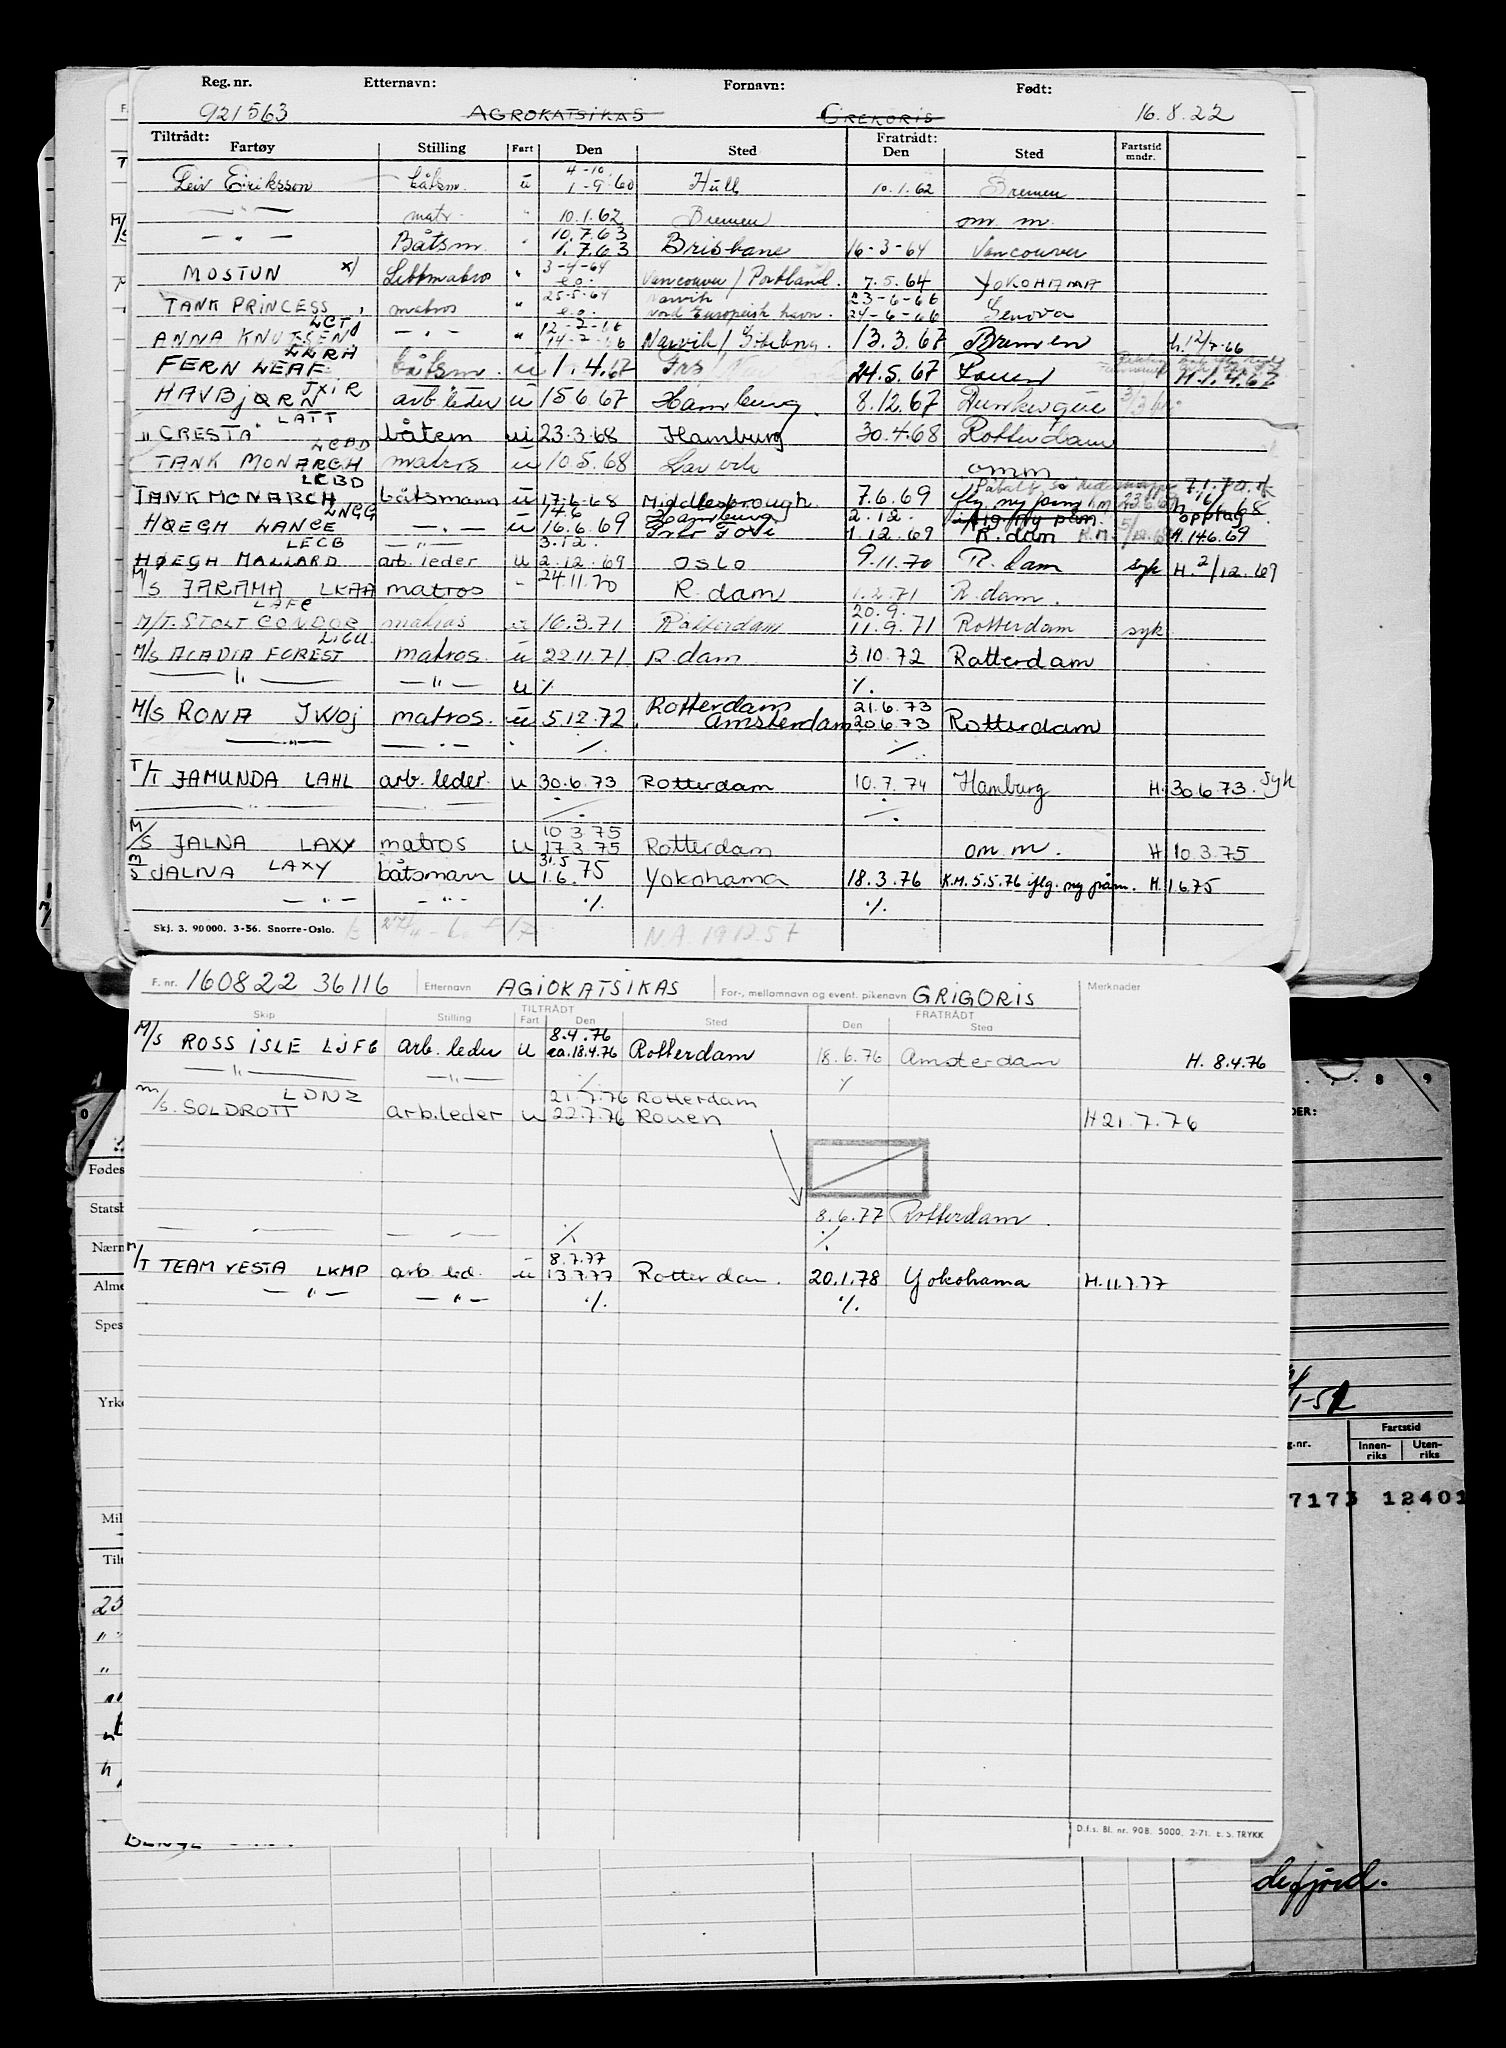 Reg. nr. Etternavn: Fornavn: Født:
921563 AGROKATSIKAS GREKORIS 16.8.22
Tiltrådt: Fratrådt: Fartstid
Fartøy Stilling Fart Den Sted Den Sted mndr.
4-10
Leiv Eiriksson båtsm. u 1-9-60 Hull 10.1.62 Bremen
— " — matr. " 10.1.62 Bremen om. m.
10.7.63
— " — Båtsm. " 1.7.63 Brisbane 16-3-64 Vancouver
3-4-64
MOSTUN x) Lettmatros " e.o. Vancouver / Portland. 7.5.64 YOKOHAMA
25-5-64 Narvik 23-6-66
TANK PRINCESS matros " e.o. Nord Europeisk havn. 24-6-66 Genova
LCTJ 12-7-66
ANNA KNUTSEN — " — " 14-7-66 Narvik / Göteborg. 13.3.67 Bremen h. 12/7-66
LLRH
FERN LEAF båtsm. u 1.4.67 24.5.67 Rouen H. 1.4.67
HAVBJØRN JXIR arb. leder u 15.6.67 Hamburg. 8.12.67 Dunkerque
LATT
" CRESTA" båtsm u 23.3.68 Hamburg 30.4.68 Rotterdam
LCBD
TANK MONARCH matros u 10.5.68 Larvik omm
LCBD
TANK MONARCH båtsmann u 17.6.68 Middlesbrough. 7.6.69 iflg ny påm
LNGG 14.6 Hamburg 2.12. opptag
HØEGH LANCE — " — u 16.6.69 1.12.69 R.dam H. 14.6.69
LECB 3.12.
HØEGH MALLARD arb. leder u 2.12.69 OSLO 9.11.70 R. dam syk H. 2/12.69
M/S JARAMA LKAA matros - 24.11.70 R. dam 1.2.71 R. dam.
LAFC 20.9.
M/T. STOLT CONDOR matros u 16.3.71 Rotterdam 11.9.71 Rotterdam syk
LIGU
M/S ACADIA FOREST matros. u 22.11.71 R. dam 3.10.72 Rotterdam
— " — — " — u ./. ./.
Rotterdam 21.6.73
M/S RONA JWOJ matros. u 5.12.72. Amsterdam 20.6.73 Rotterdam
— " — — " — " ./. ./.
T/T JAMUNDA LAHL arb. leder. u 30.6.73 Rotterdam 10.7.74 Hamburg H. 30.6.73. syk
— " — — " — ./. ./.
10.3.75
M/S JALNA LAXY matros u 17.3.75 Rotterdam om.m. H 10.3.75
31.5
M/S JALNA LAXY båtsmann u 1.6.75 Yokohama 18.3.76 K.M. 5.5.76 iflg. ny påm. H. 1.6.75
— " — — " — ./. ./.
Skj. 3. 90 000. 3-56. Snorre-Oslo. N.A. 19.12.57
F. nr. 160822 36116 Etternavn AGIOKATSIKAS For-, mellomnavn og event. pikenavn GRIGORIS Merknader
TILTRÅDT FRATRÅDT
Skip Stilling Fart Den Sted Den Sted
8.4.76
M/S ROSS ISLE LJFG arb. leder u ca. 18.4.76 Rotterdam 18.6.76 Amsterdam H. 8.4.76
— " — — " — ./. ./.
LDNZ 21.7.76 Rotterdam
M/S. SOLDROTT arb.leder u 22.7.76 Rouen H 21.7.76
8.6.77 Rotterdam.
— " — — " — ./. ./.
8.7.77
M/T TEAM VESTA LKMP arb. led. u 13.7.77 Rotterdam. 20.1.78 Yokohama H. 11.7.77
— " — — " — ./. ./.
D.f.s. Bl. nr. 90B. 5000, 2-71. E. S. TRYKK
Fødes
Statsb
Nærm
Alme
Spes
Yrke
Mil
Tilt
25
. 8 9
DER:
1-52
Fartstid
g.nr. Innen-riks Uten-riks
7173 12401
defjord.